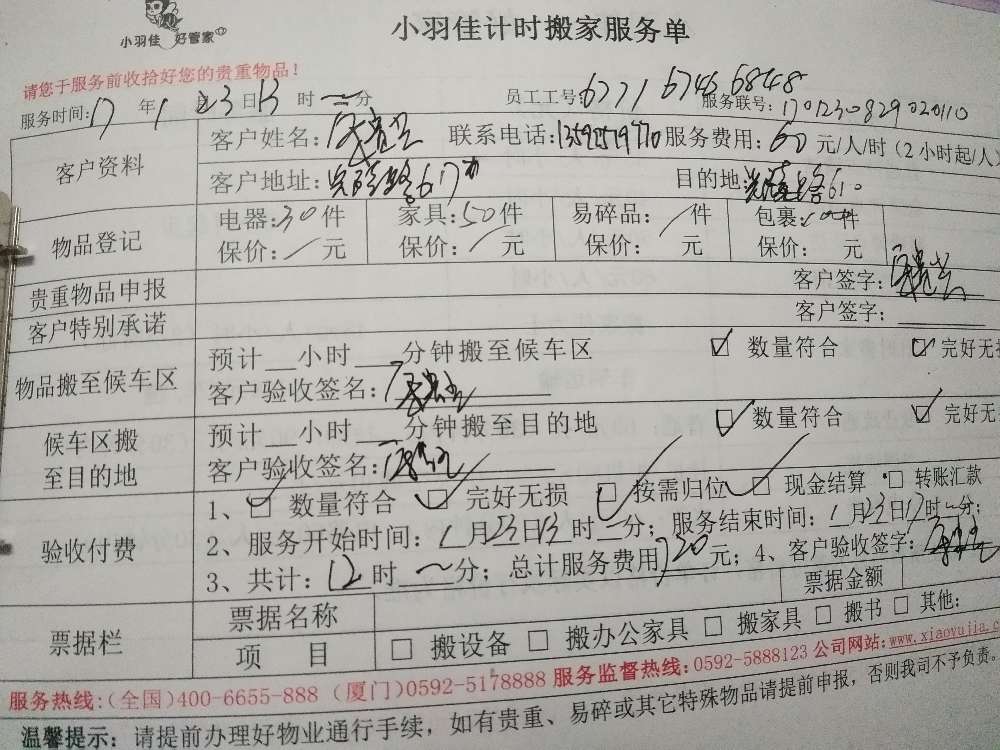 小羽佳 好管家
小羽佳计时搬家服务单
请您于服务前收拾好您的贵重物品！
服务时间：17 年 1 月 23 日 13 时 分
员工工号：6771 6746 6848
服务联号：170123082902010
客户资料
客户姓名： 联系电话：13592519770 服务费用：60 元/人/时（2小时起/人）
客户地址： 617 目的地： 610
物品登记
电器：30 件 家具：50 件 易碎品：/ 件 包裹： 件
保价：/ 元 保价：/ 元 保价：/ 元 保价：/ 元
贵重物品申报 客户签字：
客户特别承诺 客户签字：
物品搬至候车区
预计 小时 分钟搬至候车区 ☑ 数量符合 ☑ 完好无损
客户验收签名：
候车区搬至目的地
预计 小时 分钟搬至目的地 ☑ 数量符合 ☑ 完好无
客户验收签名：
验收付费
1、☑ 数量符合 ☑ 完好无损 ☑ 按需归位 ☑ 现金结算 □ 转账汇款
2、服务开始时间：1 月 23 日 13 时 分；服务结束时间：1 月 23 日 17 时 分；
3、共计：12 时 分；总计服务费用 720 元；4、客户验收签字：
票据栏
票据名称 票据金额
项 目 □ 搬设备 □ 搬办公家具 □ 搬家具 □ 搬书 □ 其他：
服务热线：（全国）400-6655-888 （厦门）0592-5178888 服务监督热线：0592-5888123 公司网站：www.xiaoyujia.c
温馨提示：请提前办理好物业通行手续，如有贵重、易碎或其它特殊物品请提前申报，否则我司不予负责。